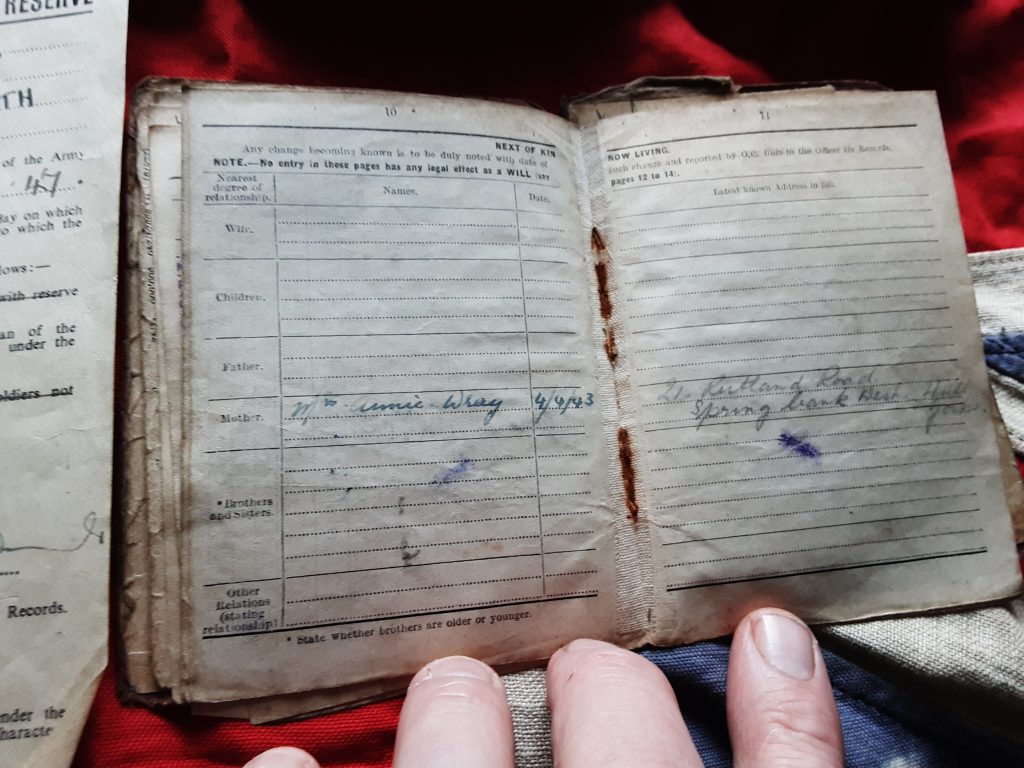 RESERVE
TH
of the Army
47.
day on which
to which the
lows:—
with reserve
an of the
under the
oldiers not
Records.
nder the
haracte
10
NEXT OF KIN
Any change becoming known is to be duly noted with date of
NOTE.—No entry in these pages has any legal effect as a WILL (see
Nearest degree of relationship.
Names.
Date.
Wife.
Children.
Father.
Mother.
Mrs Annie Wray 4/4/43
* Brothers
and Sisters.
Other
Relations
(stating
relationship)
* State whether brothers are older or younger.
11
NOW LIVING.
such change and reported by O.C. Unit to the Officer i/c Records.
pages 12 to 14).
Latest known Address in full.
21, Rutland Road
Spring bank West Hull
Yorks